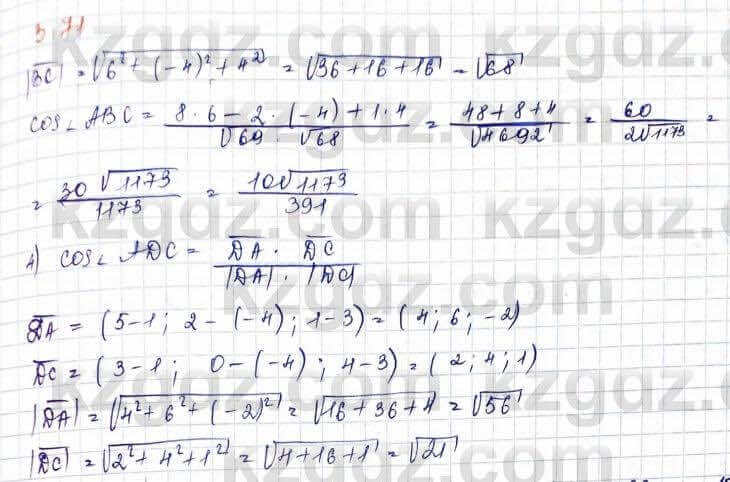 3 71
|BC| = √6² + (-4)² + 4² = √36 + 16 + 16 = √68
cos∠ABC = 8 · 6 - 2 · (-4) + 1 · 4 / √69 · √68 = 48 + 8 + 4 / √4692 = 60 / 2√1173 =
= 30√1173 / 1173 = 10√1173 / 391
4) cos∠ADC = DA · DC / |DA| · |DC|
DA = (5-1; 2-(-4); 1-3) = (4; 6; -2)
DC = (3-1; 0-(-4); 4-3) = (2; 4; 1)
|DA| = √4² + 6² + (-2)² = √16 + 36 + 4 = √56
|DC| = √2² + 4² + 1² = √4 + 16 + 1 = √21
kzgdz.com